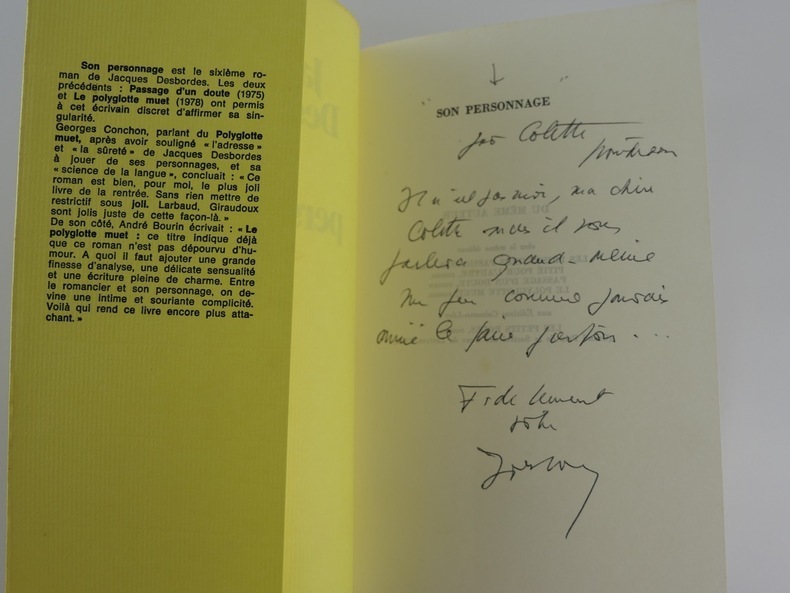 Son personnage est le sixième ro-
man de Jacques Desbordes. Les deux
précédents : Passage d'un doute (1975)
et Le polyglotte muet (1978) ont permis
à cet écrivain discret d'affirmer sa sin-
gularité.
Georges Conchon, parlant du Polyglotte
muet, après avoir souligné « l'adresse »
et « la sûreté » de Jacques Desbordes
à jouer de ses personnages, et sa
« science de la langue », concluait : « Ce
roman est bien, pour moi, le plus joli
livre de la rentrée. Sans rien mettre de
restrictif sous joli. Larbaud, Giraudoux
sont jolis juste de cette façon-là. »
De son côté, André Bourin écrivait : « Le
polyglotte muet : ce titre indique déjà
que ce roman n'est pas dépourvu d'hu-
mour. A quoi il faut ajouter une grande
finesse d'analyse, une délicate sensualité
et une écriture pleine de charme. Entre
le romancier et son personnage, on de-
vine une intime et souriante complicité.
Voilà qui rend ce livre encore plus atta-
chant. »
" SON PERSONNAGE "
Colette
Il n'est pas moi, ma chère
Colette mais il vous
parlera quand-même
un peu comme j'aurais
aimé le faire parfois...
Fidèlement
vôtre